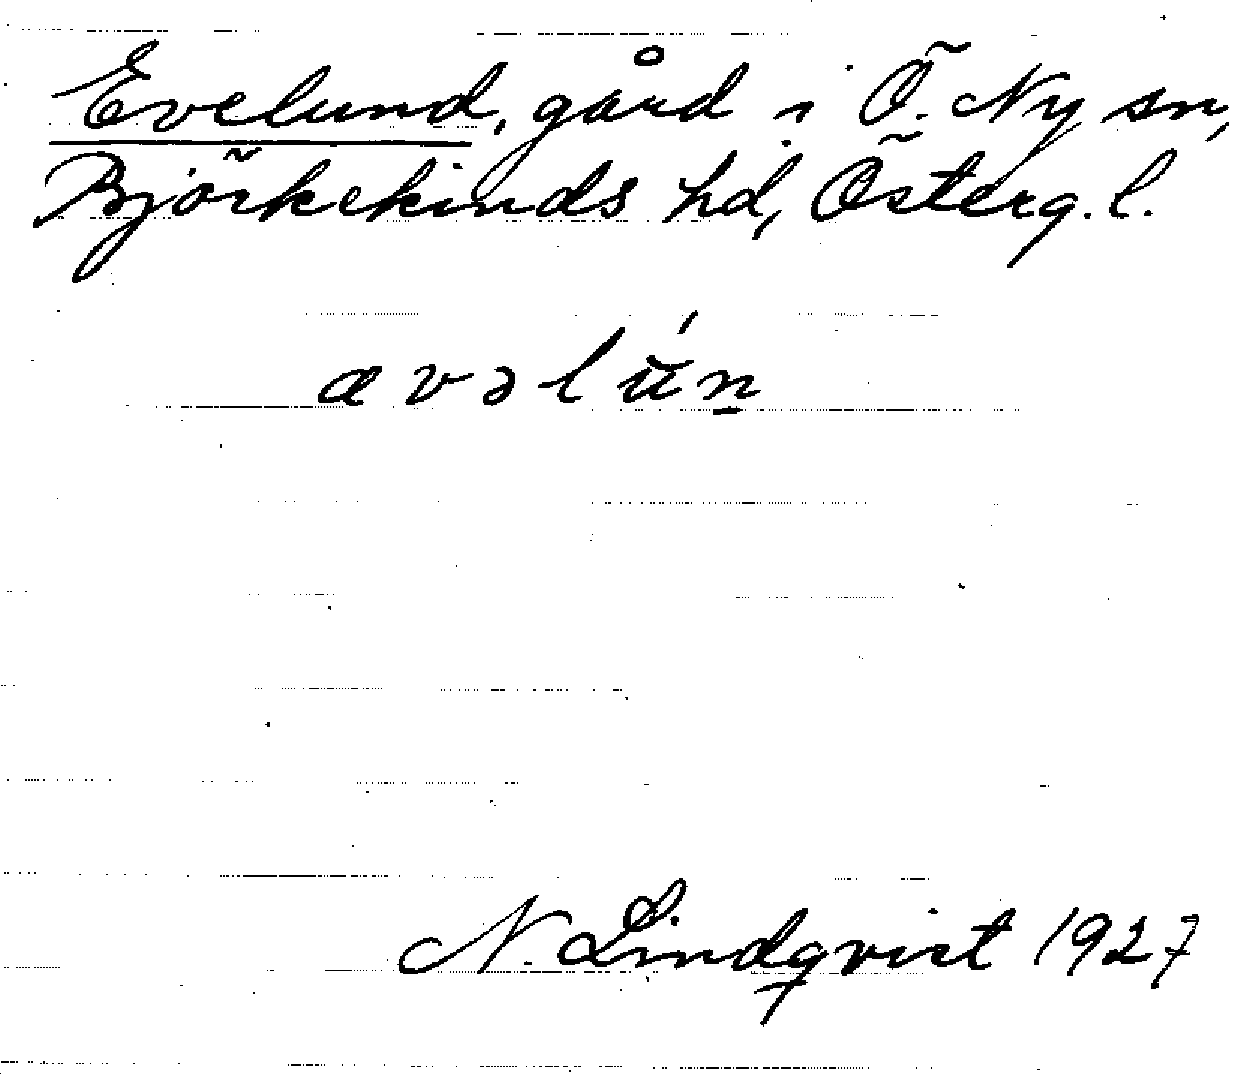 Evelund, gård i Ö. Ny sn,
Björkekinds hd, Österg. l.
ævəlún̲
N. Lindqvist 1927